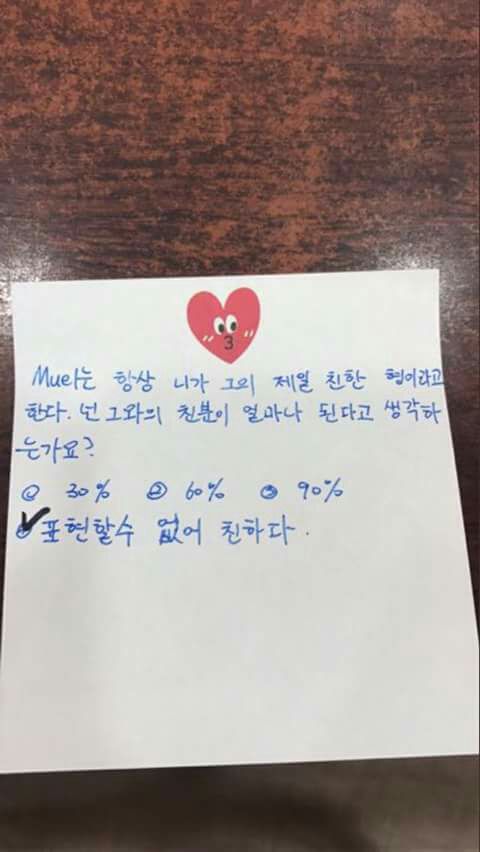 Muel는 항상 니가 그의 제일 친한 형이라고
한다. 넌 그와의 친분이 얼마나 된다고 생각하
는가요?
① 30% ② 60% ③ 90%
④ 표현할수 없어 친하다.